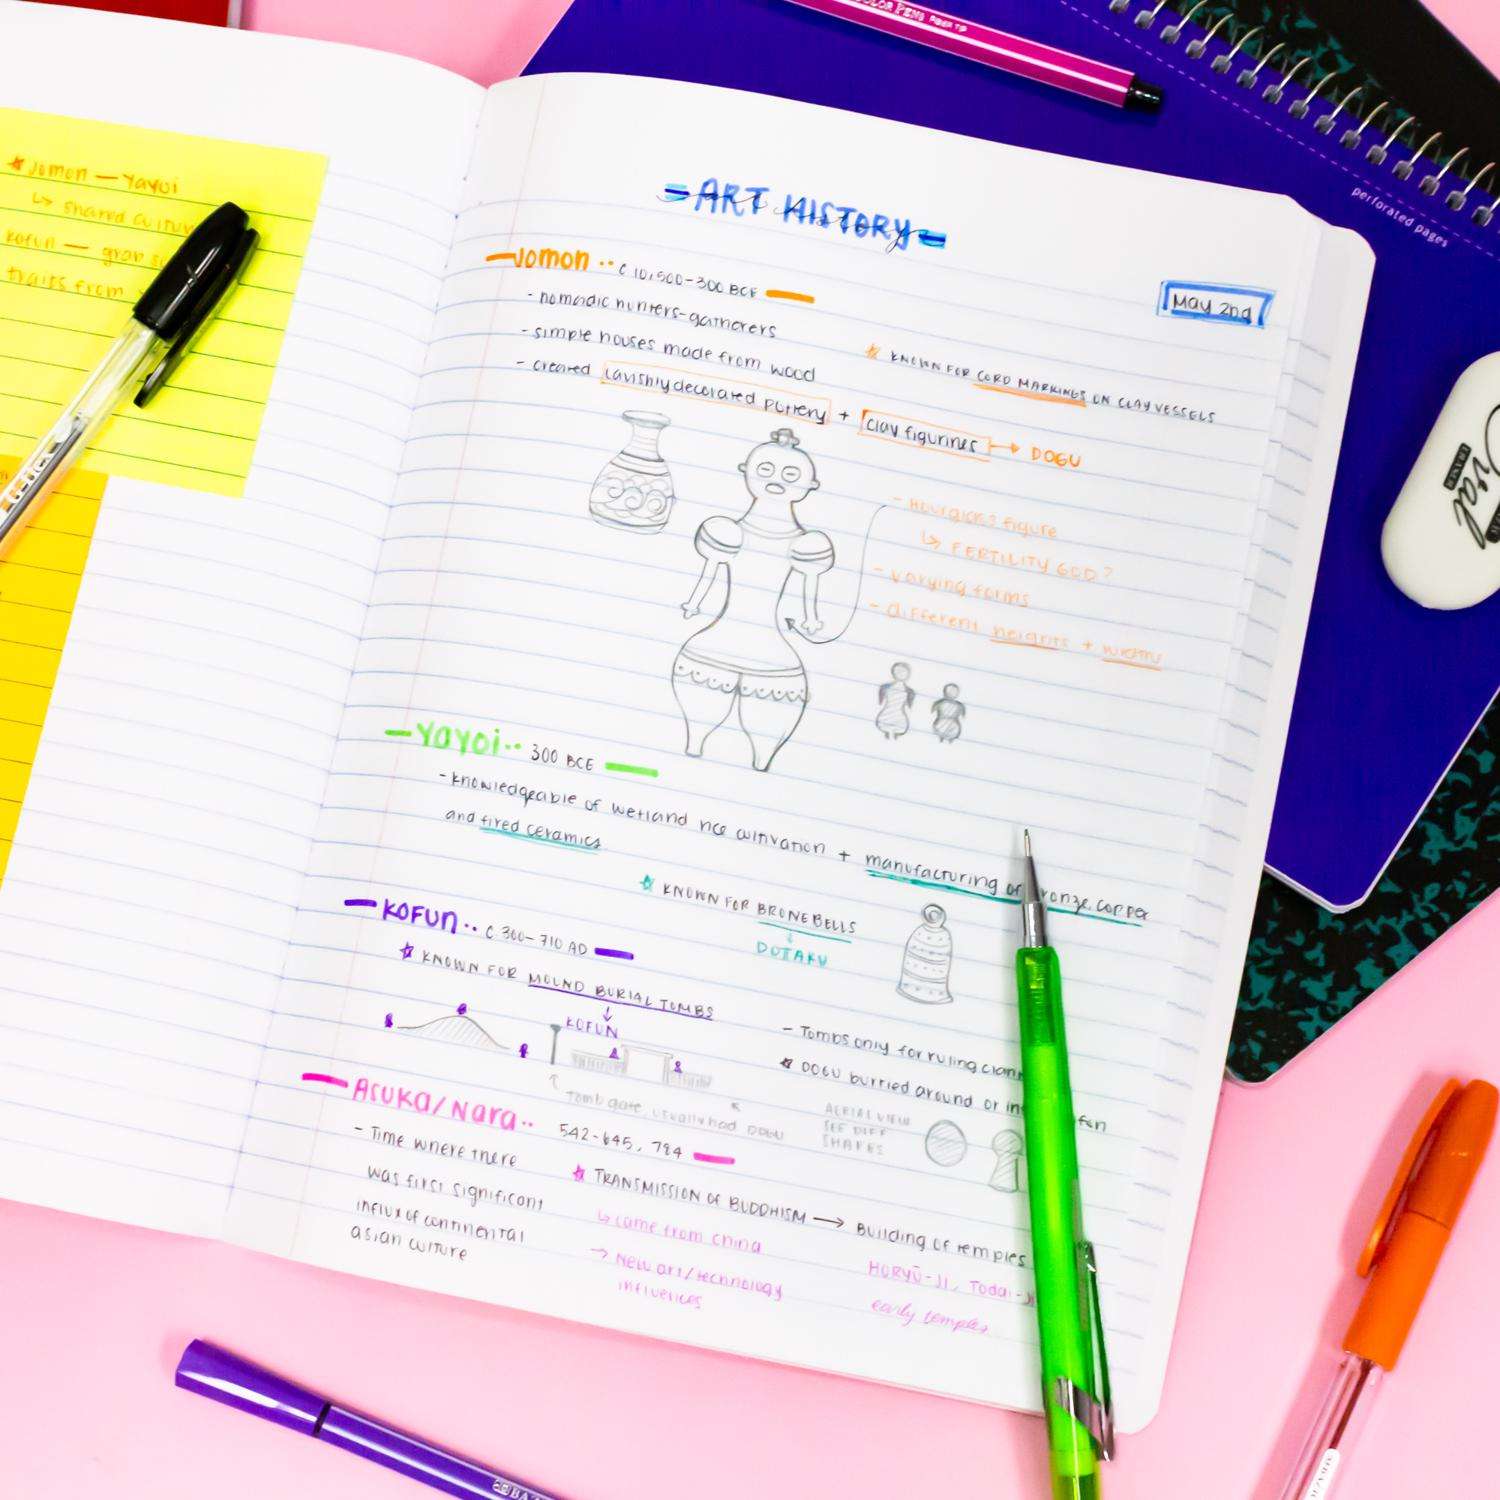 ★ Jomon — Yayoi
↳ shared
Kofun —
traits from
ART HISTORY
May 2nd
— Jomon ·· C 10,500-300 BCE —
- nomadic hunters-gatherers
- simple houses made from wood
- created lavishly decorated pottery + clay figurines → DOGU
★ KNOWN FOR CORD MARKINGS ON CLAY VESSELS
- Hourglass figure
↳ FERTILITY GOD?
- varying forms
- different heights + widths
— Yayoi ·· 300 BCE —
- knowledgeable of wetland rice cultivation + manufacturing of bronze, copper
and fired ceramics
★ KNOWN FOR BRONE BELLS
↓
DOTAKU
— KOFUN ·· C 300-710 AD —
★ KNOWN FOR MOUND BURIAL TOMBS
↓
KOFUN
Tomb gate, usually had DOGU
- Tombs only for ruling
★ DOGU burried around or
AERIAL VIEW
SEE DIFF
SHAPES
— Asuka/Nara ·· 542-645, 784 —
- Time where there
was first significant
influx of continental
asian culture
★ TRANSMISSION OF BUDDHISM → Building of temples
↳ came from china
→ New art/technology
influences
HORYŪ-JI, Todai-
early temples
perforated pages